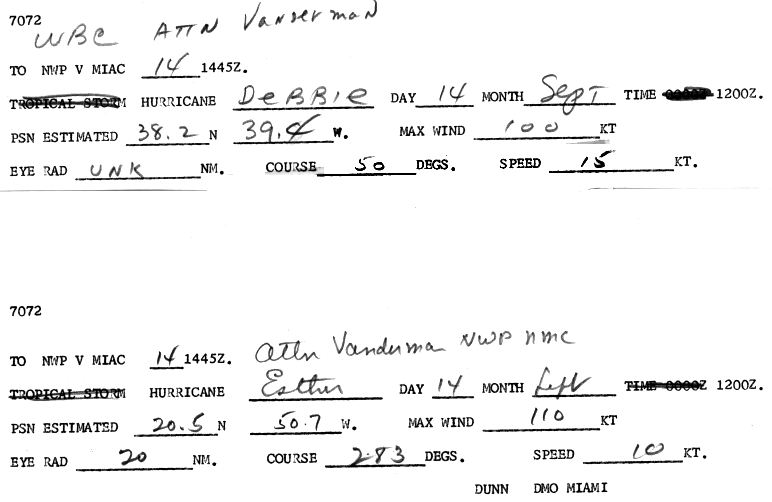 7072
WBC ATTN Vanderman
TO NWP V MIAC 14 1445Z.
TROPICAL STORM HURRICANE DeBBIE DAY 14 MONTH Sept TIME 0000Z 1200Z.
PSN ESTIMATED 38.2 N 39.4 W. MAX WIND 100 KT
EYE RAD UNK NM. COURSE 50 DEGS. SPEED 15 KT.
7072
TO NWP V MIAC 14 1445Z. Attn Vanderman NWP nmc
TROPICAL STORM HURRICANE Esther DAY 14 MONTH Sept TIME 0000Z 1200Z.
PSN ESTIMATED 20.5 N 50.7 W. MAX WIND 110 KT
EYE RAD 20 NM. COURSE 283 DEGS. SPEED 10 KT.
DUNN DMO MIAMI